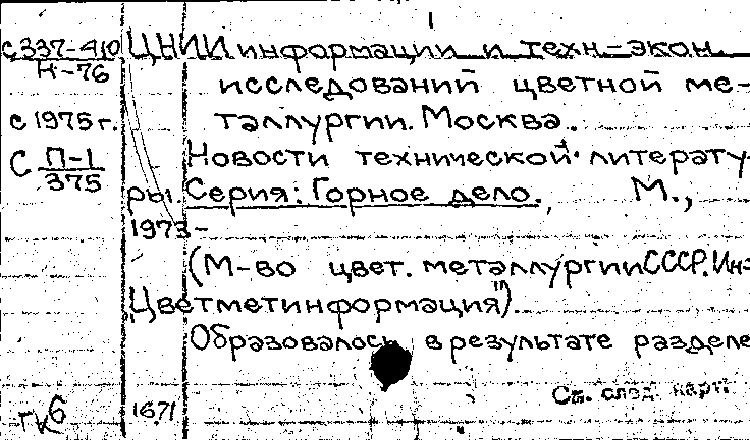 с 337-410 ЦНИИ информации и техн.-экон.
Н-76
исследований цветной ме-
с 1975г. таллургии. Москва.
Новости технической литерату-
С П-1
375
ры. Серия: Горное дело., М.,
1973-
(М-во цвет. металлургии СССР. Ин-
"Цветметинформация").
Образовалось в результате разделе
См. след. карт.
1671